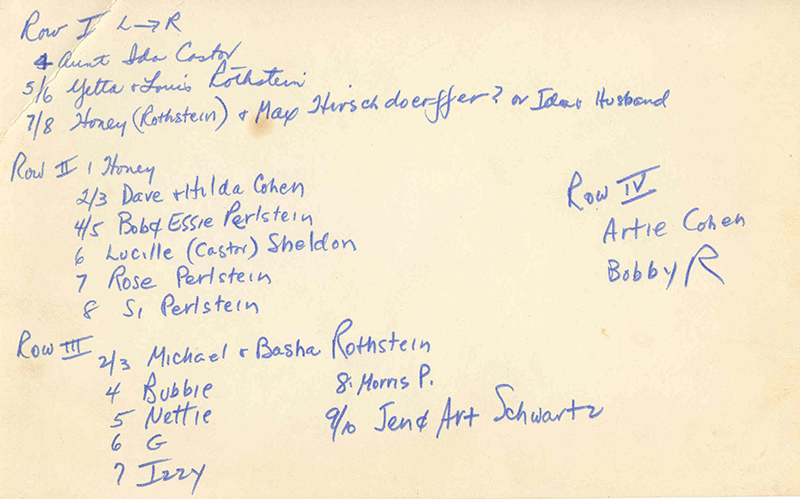 Row I L→R
4 Aunt Ida Castor
5/6 Yetta + Louis Rothstein
7/8 Honey (Rothstein) + Max Hirschdoerffer? or Idas Husband
Row II 1 Honey
2/3 Dave + Hilda Cohen
4/5 Bob & Essie Perlstein
6 Lucille (Castor) Sheldon
7 Rose Perlstein
8 Si Perlstein
Row III 2/3 Michael + Basha Rothstein
4 Bubbie
5 Nettie
6 G
7 Izzy
8. Morris P.
9/10 Jen & Art Schwartz
Row IV
Artie Cohen
Bobby R